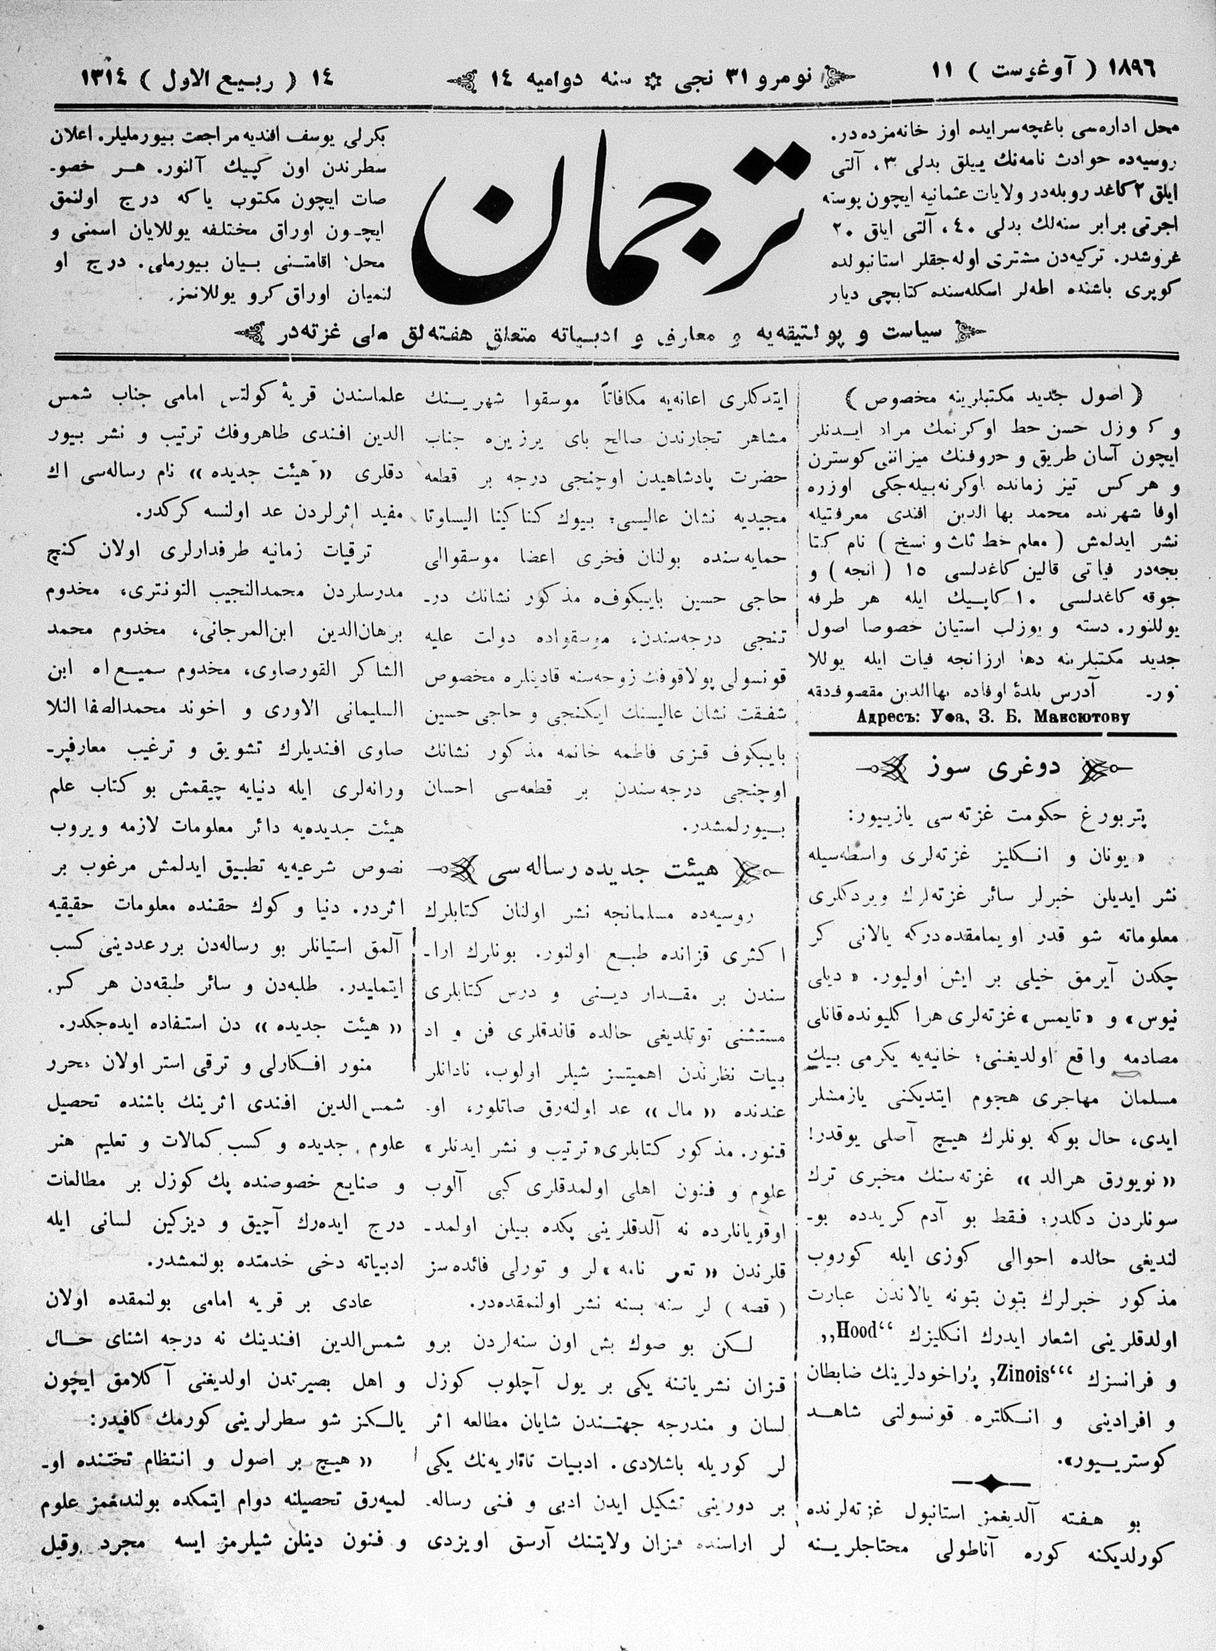 ١٨٩٦ ( آوغوست ) ١١
نومرو ٣١ نجى ✼ سنه دواميه ١٤
١٤ ( ربيع الاول ) ١٣١٤
محل اداره‌سى باغچه‌سرايده اوز خانه‌مزده‌در.
روسيه‌ده حوادث نامه‌نك ييللق بدلى ٣، آلتى
ايلق ٢ كاغد روبله‌در ولايات عثمانيه ايچون پوسته
اجرتى برابر سنه‌لك بدلى ٤٠، آلتى ايلق ٢٠
غروشدر. تركيه‌دن مشترى اوله‌جقلر استانبولده
كوپرى باشنده اطه‌لر اسكله‌سنده كتابچى ديار
ترجمان
بكرلى يوسف افنديه مراجعت بيورمليلر. اعلان
سطرندن اون كپيك آلنور. هر خصو-
صات ايچون مكتوب ياكه درج اولنمق
ايچون اوراق مختلفه يوللايان اسمنى و
محل اقامتنى بيان بيورملى. درج او
لنميان اوراق كرو يوللانمز.
سياست و پولتيقه‌يه و معارف و ادبياته متعلق هفته‌لق ملى غزته‌در
( اصول جديد مكتبلرينه مخصوص )
و كوزل حسن خط اوكرنمك مراد ايدنلر
ايچون آسان طريق و حروفنك ميزاننى كوسترن
و هر كس تيز زمانده اوكرنه‌بيله‌جكى اوزره
اوفا شهرنده محمد بها الدين افندى معرفتيله
نشر ايدلمش ( معلم خط ثلث و نسخ ) نام كتا
بجه‌در فياتى قالين كاغدلسى ١٥ ( انجه ) و
جوقه كاغدلسى ١٠ كاپيك ايله هر طرفه
يوللنور. دسته و يوزلب استيان خصوصا اصول
جديد مكتبلرينه دها ارزانجه فيات ايله يوللا
نور- آدرس بلدهٔ اوفاده بها الدين مقصوفدقه
Адресъ: Уфа, З. Б. Мавсютову
دوغرى سوز
پتربورغ حكومت غزته‌سى يازييور:
«يونان و انكليز غزته‌لرى واسطه‌سيله
نشر ايديلن خبرلر سائر غزته‌لرك ويردكلرى
معلوماته شو قدر اويمامقده‌دركه يالانى كر
چكدن آيرمق خيلى بر ايش اوليور. «ديلى
نيوس» و «تايمس» غزته‌لرى هراكليونده قانلى
مصادمه واقع اولديغنى؛ خانيه‌يه يكرمى بيك
مسلمان مهاجرى هجوم ايتديكنى يازمشلر
ايدى، حال بوكه بونلرك هيچ آصلى يوقدر!
«نويورق هرالد» غزته‌سنك مخبرى ترك
سونلردن دكلدر؛ فقط بو آدم كريدده بو-
لنديغى حالده احوالى كوزى ايله كوروب
مذكور خبرلرك بتون بتونه يالاندن عبارت
اولدقلرينى اشعار ايدرك انكليزك “Hood„
و فرانسزك “Zinois„ پاراخودلرينك ضابطان
و افرادينى و انكلتره قونسولنى شاهد
كوسترييور».
بو هفته آلديغمز استانبول غزته‌لرنده
كورلديكنه كوره آناطولى محتاجلرينه
ايتدكلرى اعانه‌يه مكافاتاً موسقوا شهرينك
مشاهر تجارندن صالح باى يرزين‌ه جناب
حضرت پادشاهيدن اوچنجى درجه بر قطعه
مجيديه نشان عاليسى؛ بيوك كناكينا اليساوتا
حمايه‌سنده بولنان فخرى اعضا موسقوالى
حاجى حسين بايبكوف‌ه مذكور نشانك در-
تنجى درجه‌سندن، موسقواده دولت عليه
قونسولى پولاقوفك زوجه‌سنه قادينلره مخصوص
شفقت نشان عاليسنك ايكنجى و حاجى حسين
بايبكوف قزى فاطمه خانمه مذكور نشانك
اوچنجى درجه‌سندن بر قطعه‌سى احسان
بيورلمشدر.
هيئت جديده رساله‌سى
روسيه‌ده مسلمانجه نشر اولنان كتابلرك
اكثرى قزانده طبع اولنور. بونلرك ارا-
سندن بر مقدار دينى و درس كتابلرى
مستثنى توتلديغى حالده قاندقلرى فن و اد
بيات نظرندن اهميتسز شيلر اولوب، نادانلر
عندنده «مال» عد اولنه‌رق صاتلور، او-
قنور. مذكور كتابلرى «ترتيب و نشر ايدنلر»
علوم و فنون اهلى اولمدقلرى كبى آلوب
اوقويانلرده نه آلدقلرينى پكده بيلن اولمد-
قلرندن «تعبير نامه» لر و تورلى فائده‌سز
( قصه ) لر سنه بسنه نشر اولنمقده‌در.
لكن بو صوك بش اون سنه‌لردن برو
قزان نشرياتنه يكى بر يول آچلوب كوزل
لسان و مندرجه جهتندن شايان مطالعه اثر
لر كوريله باشلادى. ادبيات تاتاريه‌نك يكى
بر دورينى تشكيل ايدن ادبى و فنى رساله-
لر اراسنده قزان ولايتنك آرسق اويزدى
علماسندن قريهٔ كولتس امامى جناب شمس
الدين افندى طاهروفك ترتيب و نشر بيور
دقلرى «هيئت جديده» نام رساله‌سى اك
مفيد اثرلردن عد اولنسه كركدر.
ترقيات زمانيه طرفدارلرى اولان كنچ
مدرسلردن محمدالنجيب التونترى، مخدوم
برهان‌الدين ابن‌المرجانى، مخدوم محمد
الشاكر القورصاوى، مخدوم سميع‌اه ابن
السليمانى الاورى و اخوند محمدالصفا النلا
صاوى افنديلرك تشويق و ترغيب معارفپر-
ورانه‌لرى ايله دنيايه چيقمش بو كتاب علم
هيئت جديده‌يه دائر معلومات لازمه ويروب
نصوص شرعيه‌يه تطبيق ايدلمش مرغوب بر
اثردر. دنيا و كوك حقنده معلومات حقيقيه
آلمق استيانلر بو رساله‌دن بررعددينى كسب
ايتمليدر. طلبه‌دن و سائر طبقه‌دن هر كس
«هيئت جديده» دن استفاده ايده‌جكدر.
منور افكارلى و ترقى استر اولان محرر
شمس‌الدين افندى اثرينك باشنده تحصيل
علوم جديده و كسب كمالات و تعليم هنر
و صنايع خصوصنده پك كوزل بر مطالعات
درج ايده‌رك آچيق و ديزكين لسانى ايله
ادبياته دخى خدمتده بولنمشدر.
عادى بر قريه امامى بولنمقده اولان
شمس‌الدين افندينك نه درجه اشناى حال
و اهل بصيرتدن اولديغنى آكلامق ايچون
يالكز شو سطرلرينى كورمك كافيدر:
«هيچ بر اصول و انتظام تختنده او-
لميه‌رق تحصيلنه دوام ايتمكده بولندغمز علوم
و فنون دينلن شيلرمز ايسه مجرد وقيل